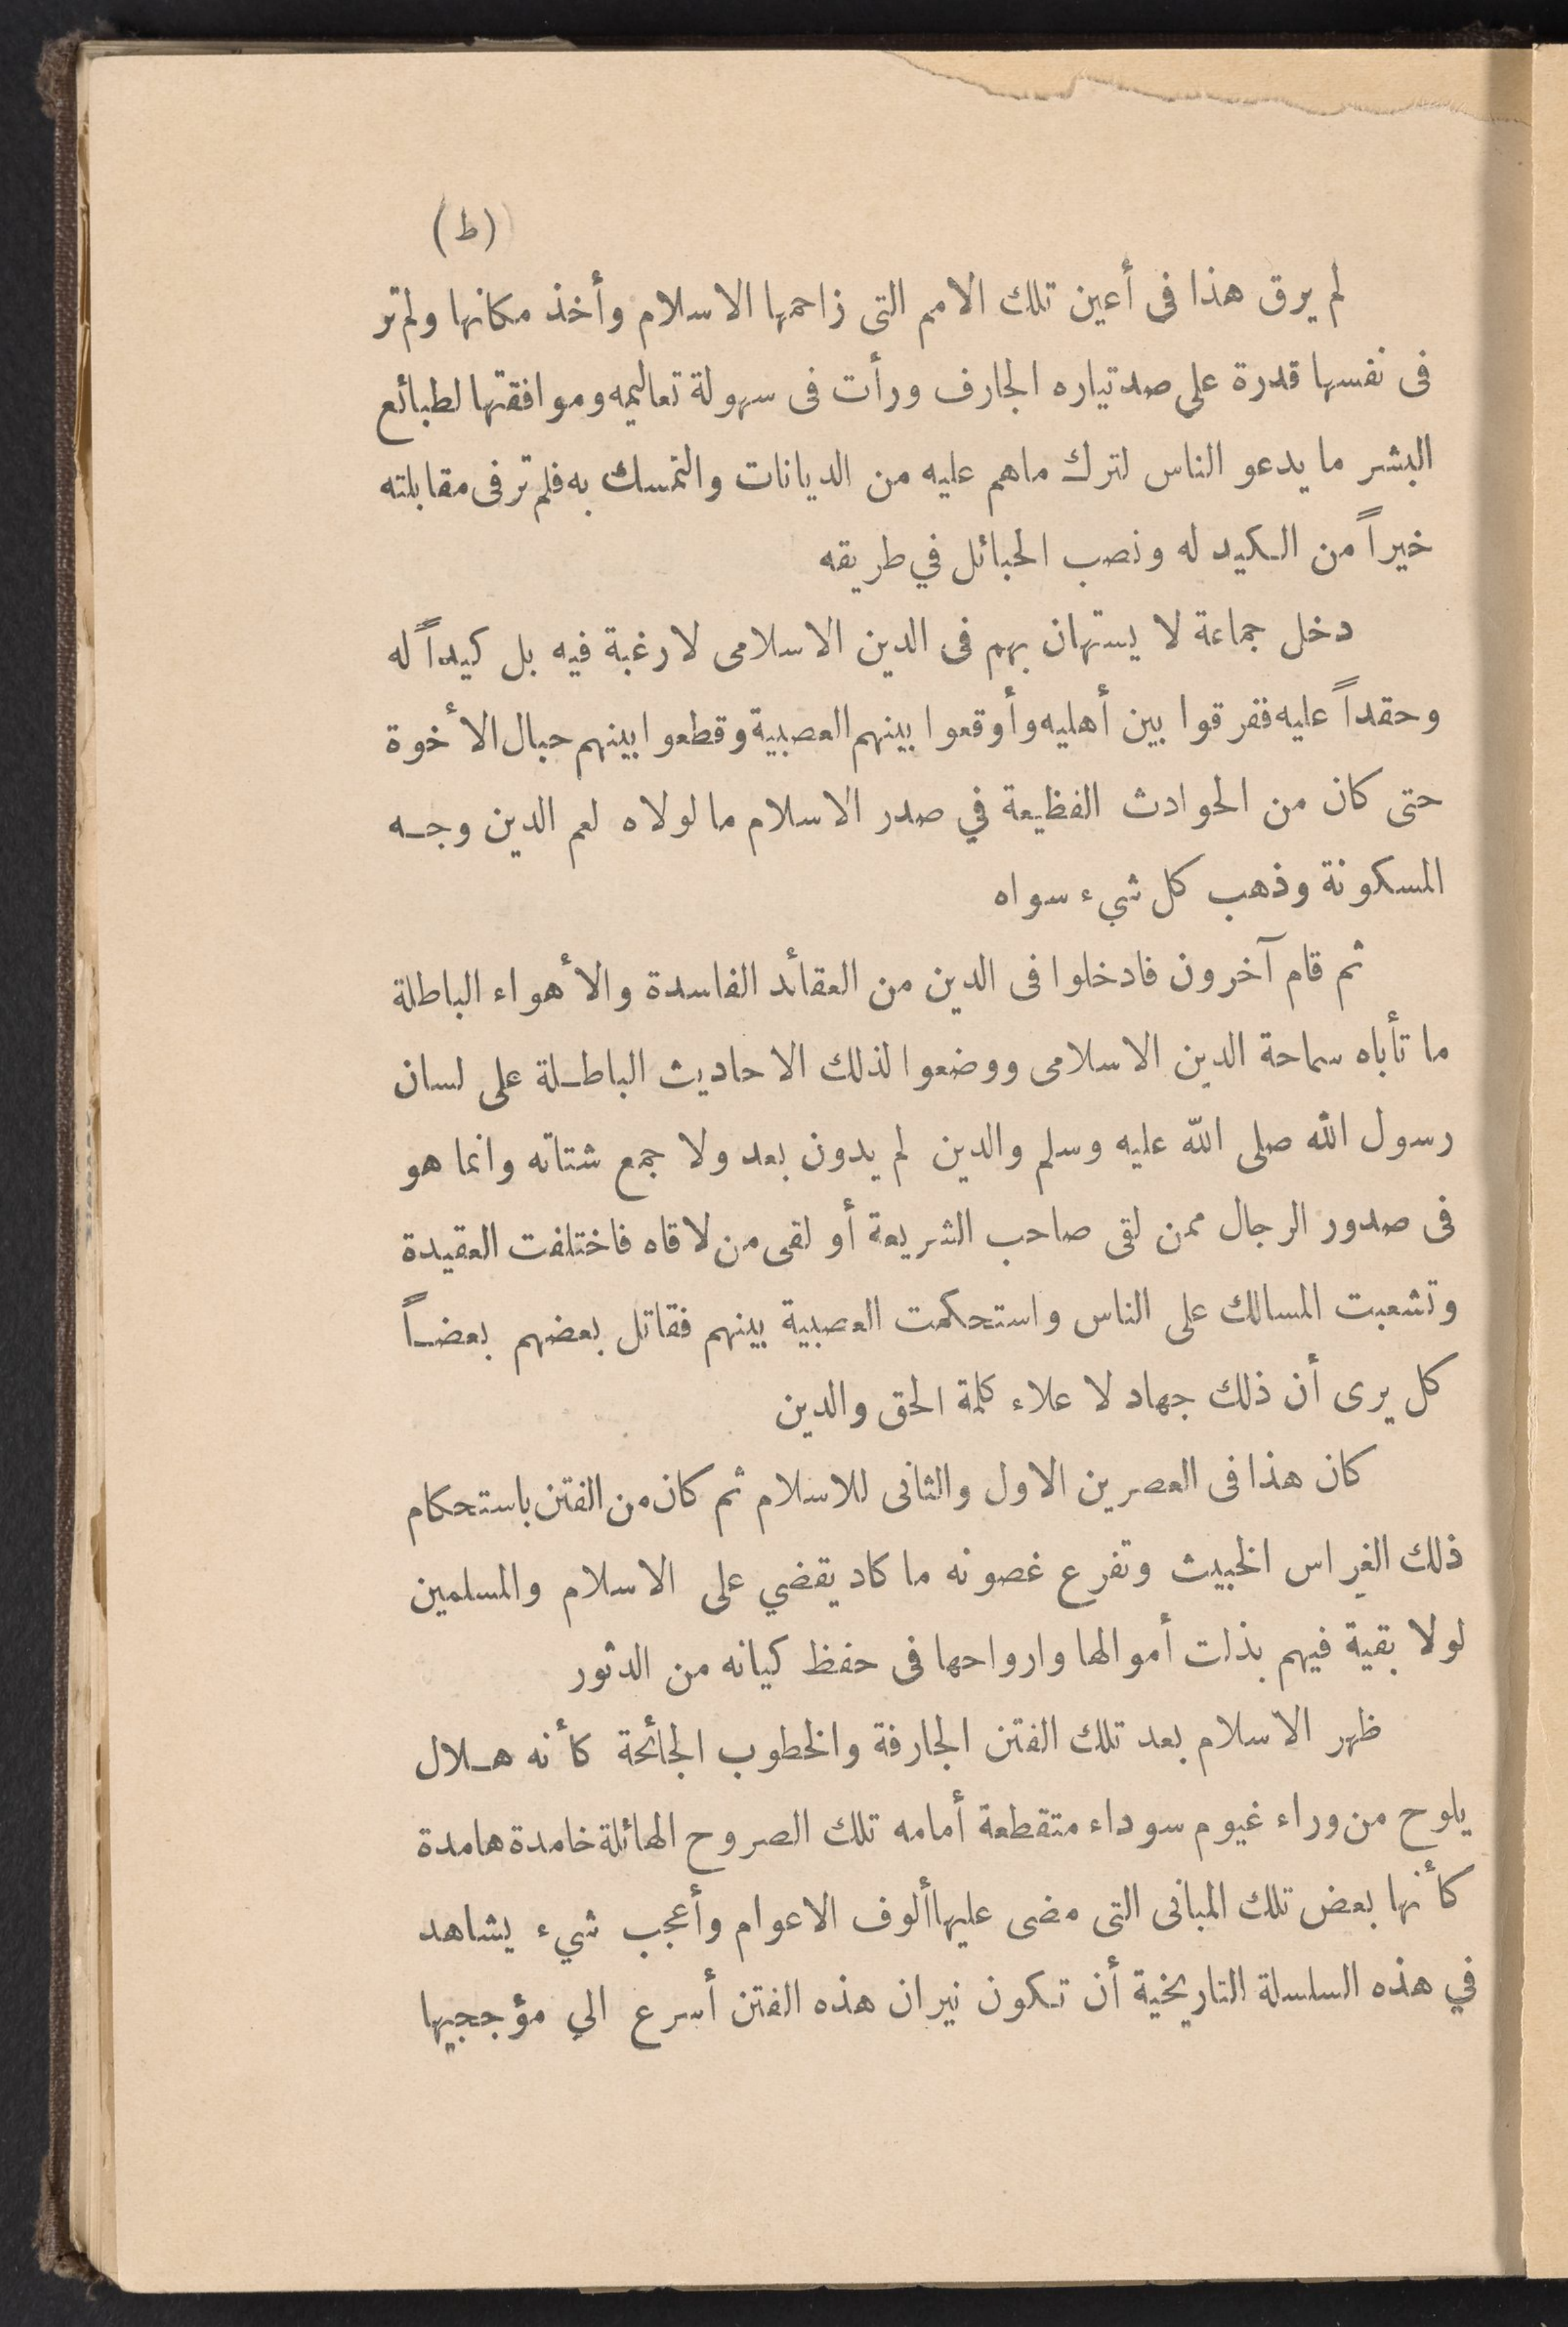 (ط)
لم يرق هذا فى أعين تلك الامم التى زاحمها الاسلام وأخذ مكانها ولم تر
فى نفسها قدرة على صد تياره الجارف ورأت فى سهولة تعاليمه وموافقتها لطبائع
البشر ما يدعو الناس لترك ماهم عليه من الديانات والتمسك به فلم تر فى مقابلته
خيراً من الكيد له ونصب الحبائل في طريقه
دخل جماعة لا يستهان بهم فى الدين الاسلامى لا رغبة فيه بل كيداً له
وحقداً عليه ففرقوا بين أهليه وأوقعوا بينهم العصبية وقطعوا بينهم حبال الأخوة
حتى كان من الحوادث الفظيعة في صدر الاسلام ما لولاه لعم الدين وجه
المسكونة وذهب كل شيء سواه
ثم قام آخرون فادخلوا فى الدين من العقائد الفاسدة والأهواء الباطلة
ما تأباه سماحة الدين الاسلامى ووضعوا لذلك الاحاديث الباطلة على لسان
رسول الله صلى الله عليه وسلم والدين لم يدون بعد ولا جمع شتاته وانما هو
فى صدور الرجال ممن لقى صاحب الشريعة أو لقى من لاقاه فاختلفت العقيدة
وتشعبت المسالك على الناس واستحكمت العصبية بينهم فقاتل بعضهم بعضاً
كل يرى أن ذلك جهاد لاعلاء كلمة الحق والدين
كان هذا فى العصرين الاول والثانى للاسلام ثم كان من الفتن باستحكام
ذلك الغراس الخبيث وتفرع غصونه ما كاد يقضي على الاسلام والمسلمين
لولا بقية فيهم بذلت أموالها وارواحها فى حفظ كيانه من الدثور
ظهر الاسلام بعد تلك الفتن الجارفة والخطوب الجائحة كأنه هلال
يلوح من وراء غيوم سوداء متقطعة أمامه تلك الصروح الهائلة خامدة هامدة
كأنها بعض تلك المبانى التى مضى عليها ألوف الاعوام وأعجب شيء يشاهد
في هذه السلسلة التاريخية أن تكون نيران هذه الفتن أسرع الي مؤججيها